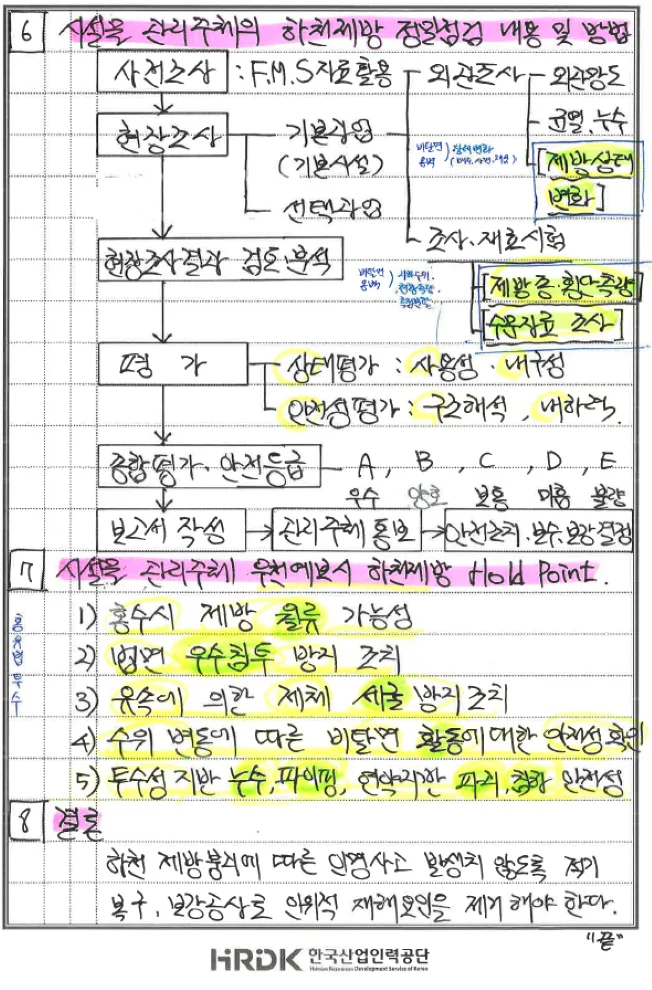 6 시설물 관리주체의 하천제방 정밀점검 내용 및 방법
사전조사 : F.M.S자료활용 외관조사 - 외관망도
현장조사 기본과업 균열.누수
(기본시설) 비탈면 옹벽 [제방상태
변화]
선택과업
조사.재료시험
현장조사결과 검토.분석 비탈면 옹벽 지하수위. [제방종.횡단측량]
수문자료 조사]
평 가 상태평가 : 사용성. 내구성
안전성평가 : 구조해석, 내하력.
종합평가.안전등급 - A, B, C, D, E
우수 양호 보통 미흡 불량
보고서 작성 → 관리주체 통보 → 안전조치.보수.보강 결정
7 시설물 관리주체 우천예보시 하천제방 Hold Point.
1) 홍수시 제방 월류 가능성
2) 법면 우수침투 방지 조치
3) 유속에 의한 제체 세굴 방지조치
4) 수위 변동에 따른 비탈면 활동에 대한 안전성 확인
5) 투수성 지반 누수, 파이핑, 연약지반 파괴, 침하 안전성
홍 유 법 투 수
8 결론
하천 제방붕괴에 따른 인명사고 발생치 않도록 적기
복구, 보강공사로 인위적 재해요인을 제거해야 한다.
"끝"
HRDK 한국산업인력공단
Human Resources Development Service of Korea